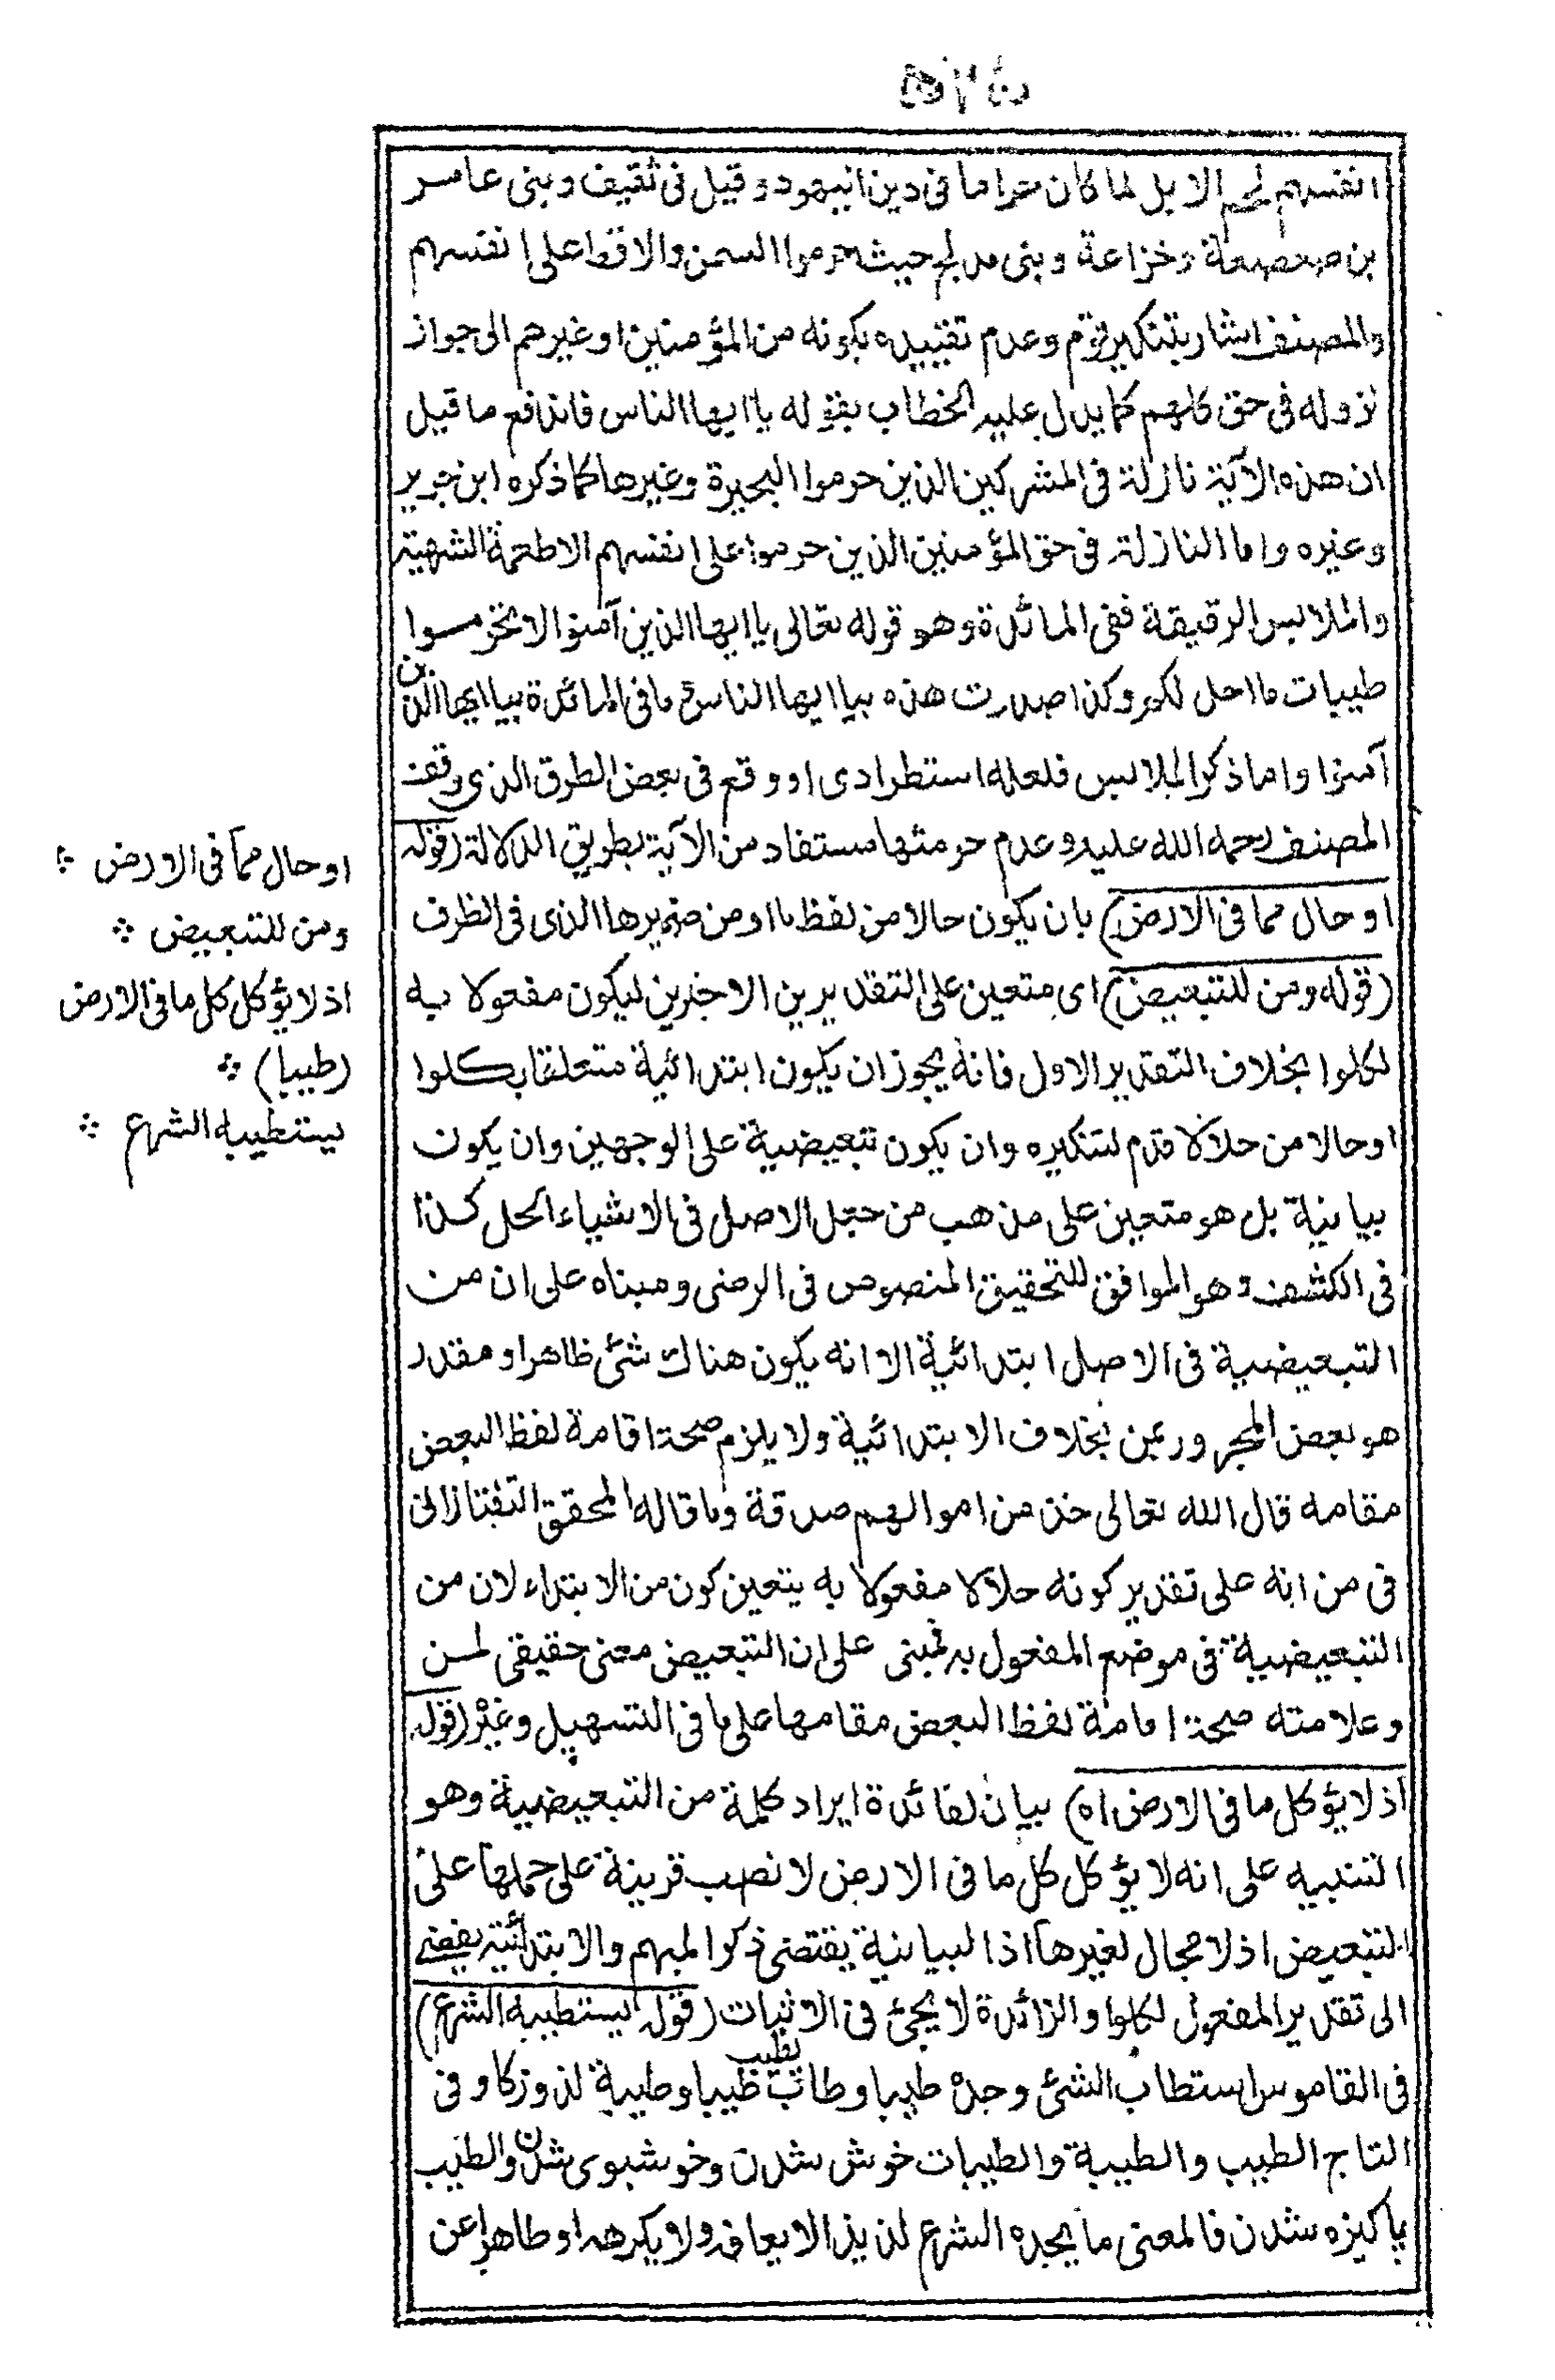 انفسهم لحم الابل لما كان حراما فى دين اليهود وقيل فى ثقيف وبنى عامر
بن صعصعة وخزاعة وبنى مدلج حيث حرموا السمن والاقط على انفسهم
والمصنف اشار بتنكير قوم وعدم تقييده بكونه من المؤمنين او غيرهم الى جواز
نزوله فى حق كلهم كما يدل عليه الخطاب بقوله يا ايها الناس فاندفع ما قيل
ان هذه الآية نازلة فى المشركين الذين حرموا البحيرة وغيرها كما ذكره ابن جرير
وغيره واما النازلة فى حق المؤمنين الذين حرموا على انفسهم الاطعمة الشهية
والملابس الرقيقة ففى المائدة وهو قوله تعالى يا ايها الذين آمنوا لا تحرموا
طيبات ما احل لكم وكذا صدرت هذه بيا ايها الناس وما فى المائدة بيا ايها الذين
آمنوا واما ذكر الملابس فلعله استطرادى او وقع فى بعض الطرق الذى وقف
المصنف رحمه الله عليه وعدم حرمتها مستفاد من الآية بطريق الدلالة (قوله
او حال مما فى الارض) بان يكون حالا من لفظ ما او من ضميرها الذى فى الظرف
(قوله ومن للتبعيض) اى متعين على التقديرين الاخيرين ليكون مفعولا به
لكلوا بخلاف التقدير الاول فانه يجوز ان يكون ابتدائية متعلقا بكلوا
او حالا من حلالا قدم لتنكيره وان يكون تبعيضية على الوجهين وان يكون
بيانية بل هو متعين على مذهب من جعل الاصل فى الاشياء الحل كذا
فى الكشف وهو الموافق للتحقيق المنصوص فى الرضى ومبناه على ان من
التبعيضية فى الاصل ابتدائية الا انه يكون هناك شئ ظاهر او مقدر
هو بعض المجرور بمن بخلاف الابتدائية ولا يلزم صحة اقامة لفظ البعض
مقامه قال الله تعالى خذ من اموالهم صدقة وما قاله المحقق التفتازانى
فى من انه على تقدير كونه حلالا مفعولا به يتعين كون من الابتداء لان من
التبعيضية فى موضع المفعول به فمبنى على ان التبعيض معنى حقيقى لمن
وعلامته صحة اقامة لفظ البعض مقامها على ما فى التسهيل وغيره (قوله
اذ لا يؤكل ما فى الارض اه) بيان لفائدة ايراد كلمة من التبعيضية وهو
التنبيه على انه لا يؤكل كل ما فى الارض لا نصب قرينة على حملها على
التبعيض اذ لا مجال لغيرها اذ البيانية يقتضى ذكر المبهم والابتدائية يفضى
الى تقدير المفعول لكلوا والزائدة لا يجئ فى الاثبات (قوله يستطيبه الشرع)
فى القاموس استطاب الشئ وجده طيبا وطاب يطيب طيبا وطيبة لذ وزكا وفى
التاج الطيب والطيبة والطيبات خوش شدن وخوشبوى شدن والطيب
پاكيزه شدن فالمعنى ما يجده الشرع لذيذا لا يعافه ولا يكرهه او طاهرا عن
او حال مما فى الارض
ومن للتبعيض
اذ لا يؤكل كل ما فى الارض
(طيبا)
يستطيبه الشرع